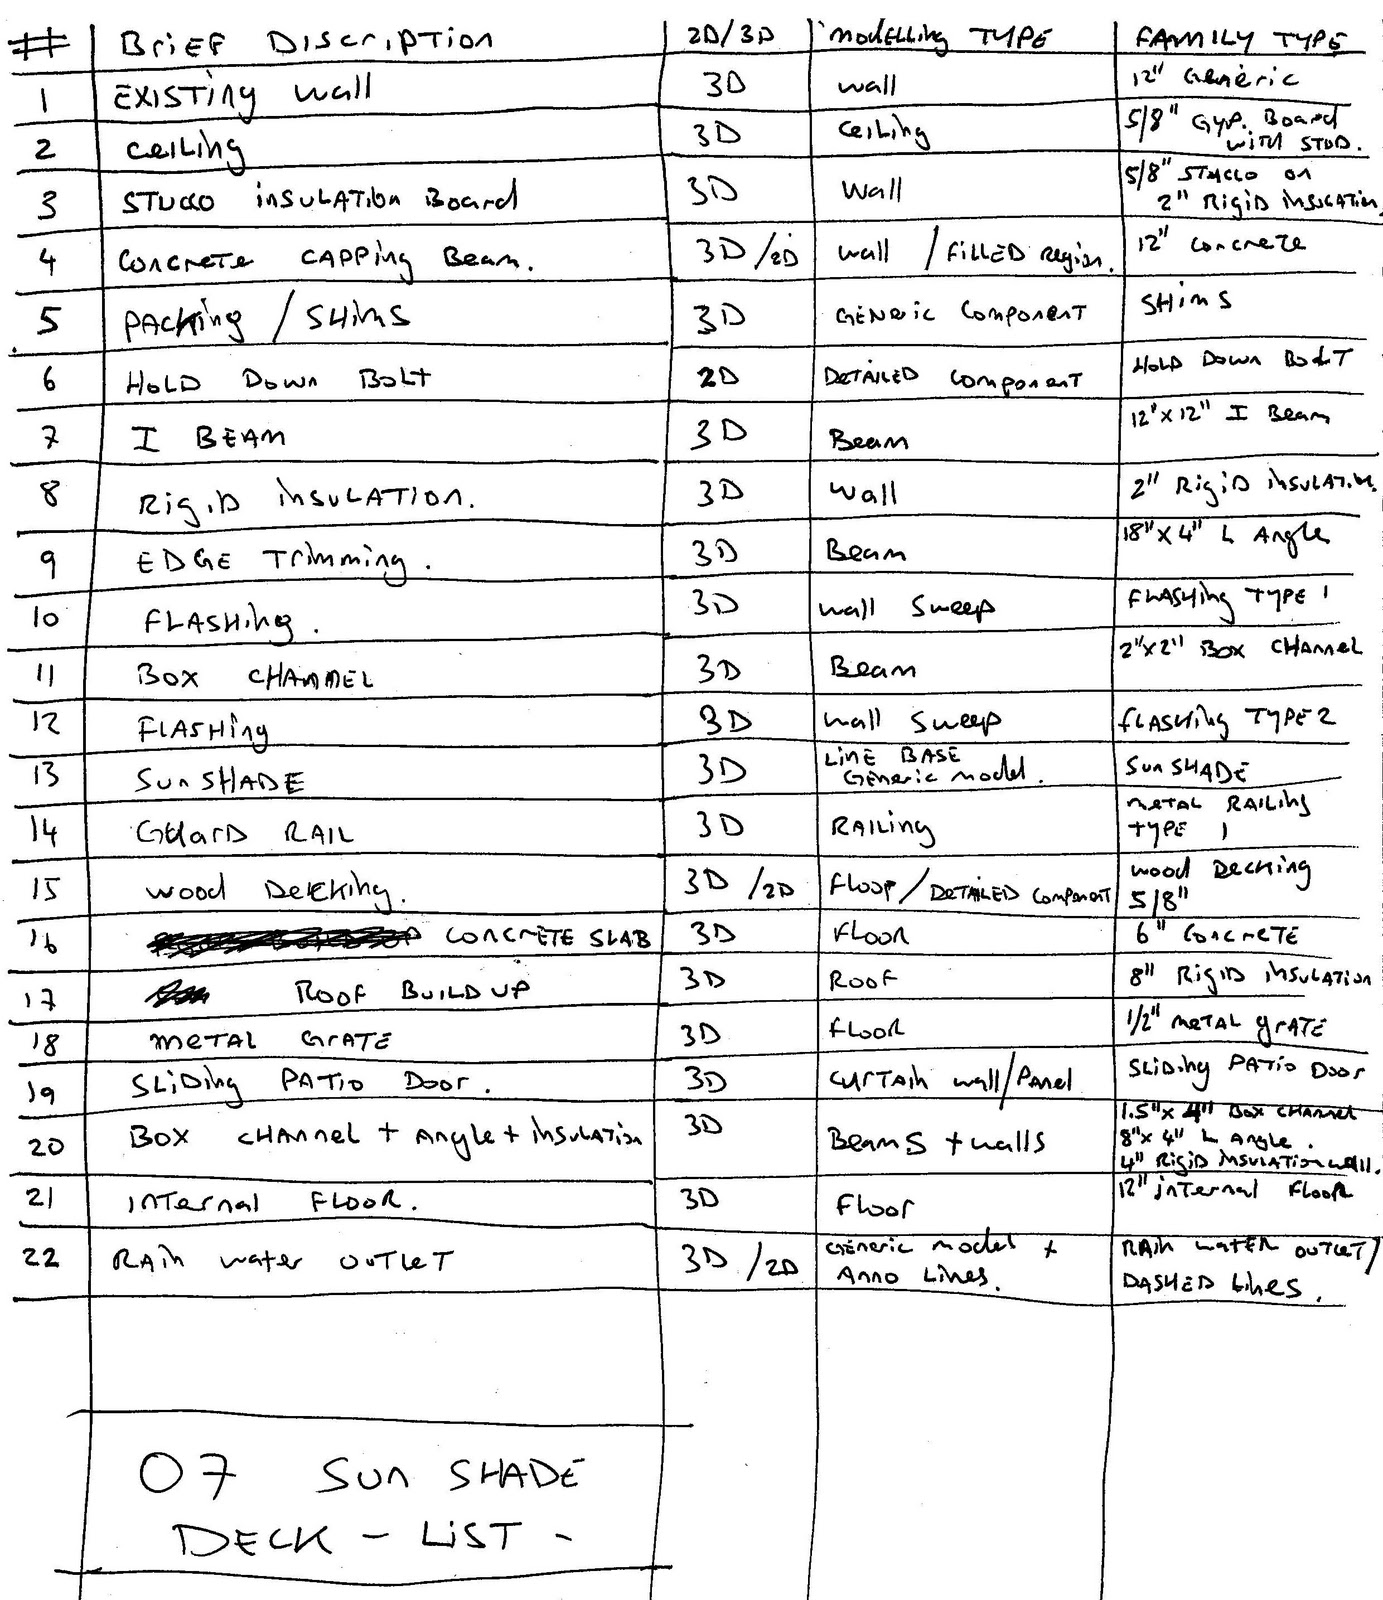 # BRIEF DISCRIPTION 2D/3D MODELLING TYPE FAMILY TYPE
1 EXISTING WALL 3D WALL 12" GENERIC
2 CEILING 3D CEILING 5/8" GYP. BOARD
WITH STUD.
3 STUCCO INSULATION BOARD 3D WALL 5/8" STUCCO ON
2" RIGID INSULATION
4 CONCRETE CAPPING BEAM. 3D/2D WALL / FILLED REGION. 12" CONCRETE
5 PACKING / SHIMS 3D GENERIC COMPONENT SHIMS
6 HOLD DOWN BOLT 2D DETAILED COMPONENT HOLD DOWN BOLT
7 I BEAM 3D BEAM 12"X12" I BEAM
8 RIGID INSULATION. 3D WALL 2" RIGID INSULATION.
9 EDGE TRIMMING. 3D BEAM 18"X4" L ANGLE
10 FLASHING. 3D WALL SWEEP FLASHING TYPE 1
11 BOX CHANNEL 3D BEAM 2"X2" BOX CHANNEL
12 FLASHING 3D WALL SWEEP FLASHING TYPE 2
13 SUN SHADE 3D LINE BASE
GENERIC MODEL. SUN SHADE
14 GUARD RAIL 3D RAILING METAL RAILING
TYPE 1
15 WOOD DECKING. 3D/2D FLOOR/DETAILED COMPONENT WOOD DECKING
5/8"
16 CONCRETE SLAB 3D FLOOR 6" CONCRETE
17 ROOF BUILD UP 3D ROOF 8" RIGID INSULATION
18 METAL GRATE 3D FLOOR 1/2" METAL GRATE
19 SLIDING PATIO DOOR. 3D CURTAIN WALL/PANEL SLIDING PATIO DOOR
20 BOX CHANNEL + ANGLE + INSULATION 3D BEAMS + WALLS 1.5"X 4" BOX CHANNEL
8"X 4" L ANGLE.
4" RIGID INSULATION WALL.
21 INTERNAL FLOOR. 3D FLOOR 12" INTERNAL FLOOR
22 RAIN WATER OUTLET 3D/2D GENERIC MODEL +
ANNO LINES. RAIN WATER OUTLET/
DASHED LINES.
07 SUN SHADE
DECK - LIST -